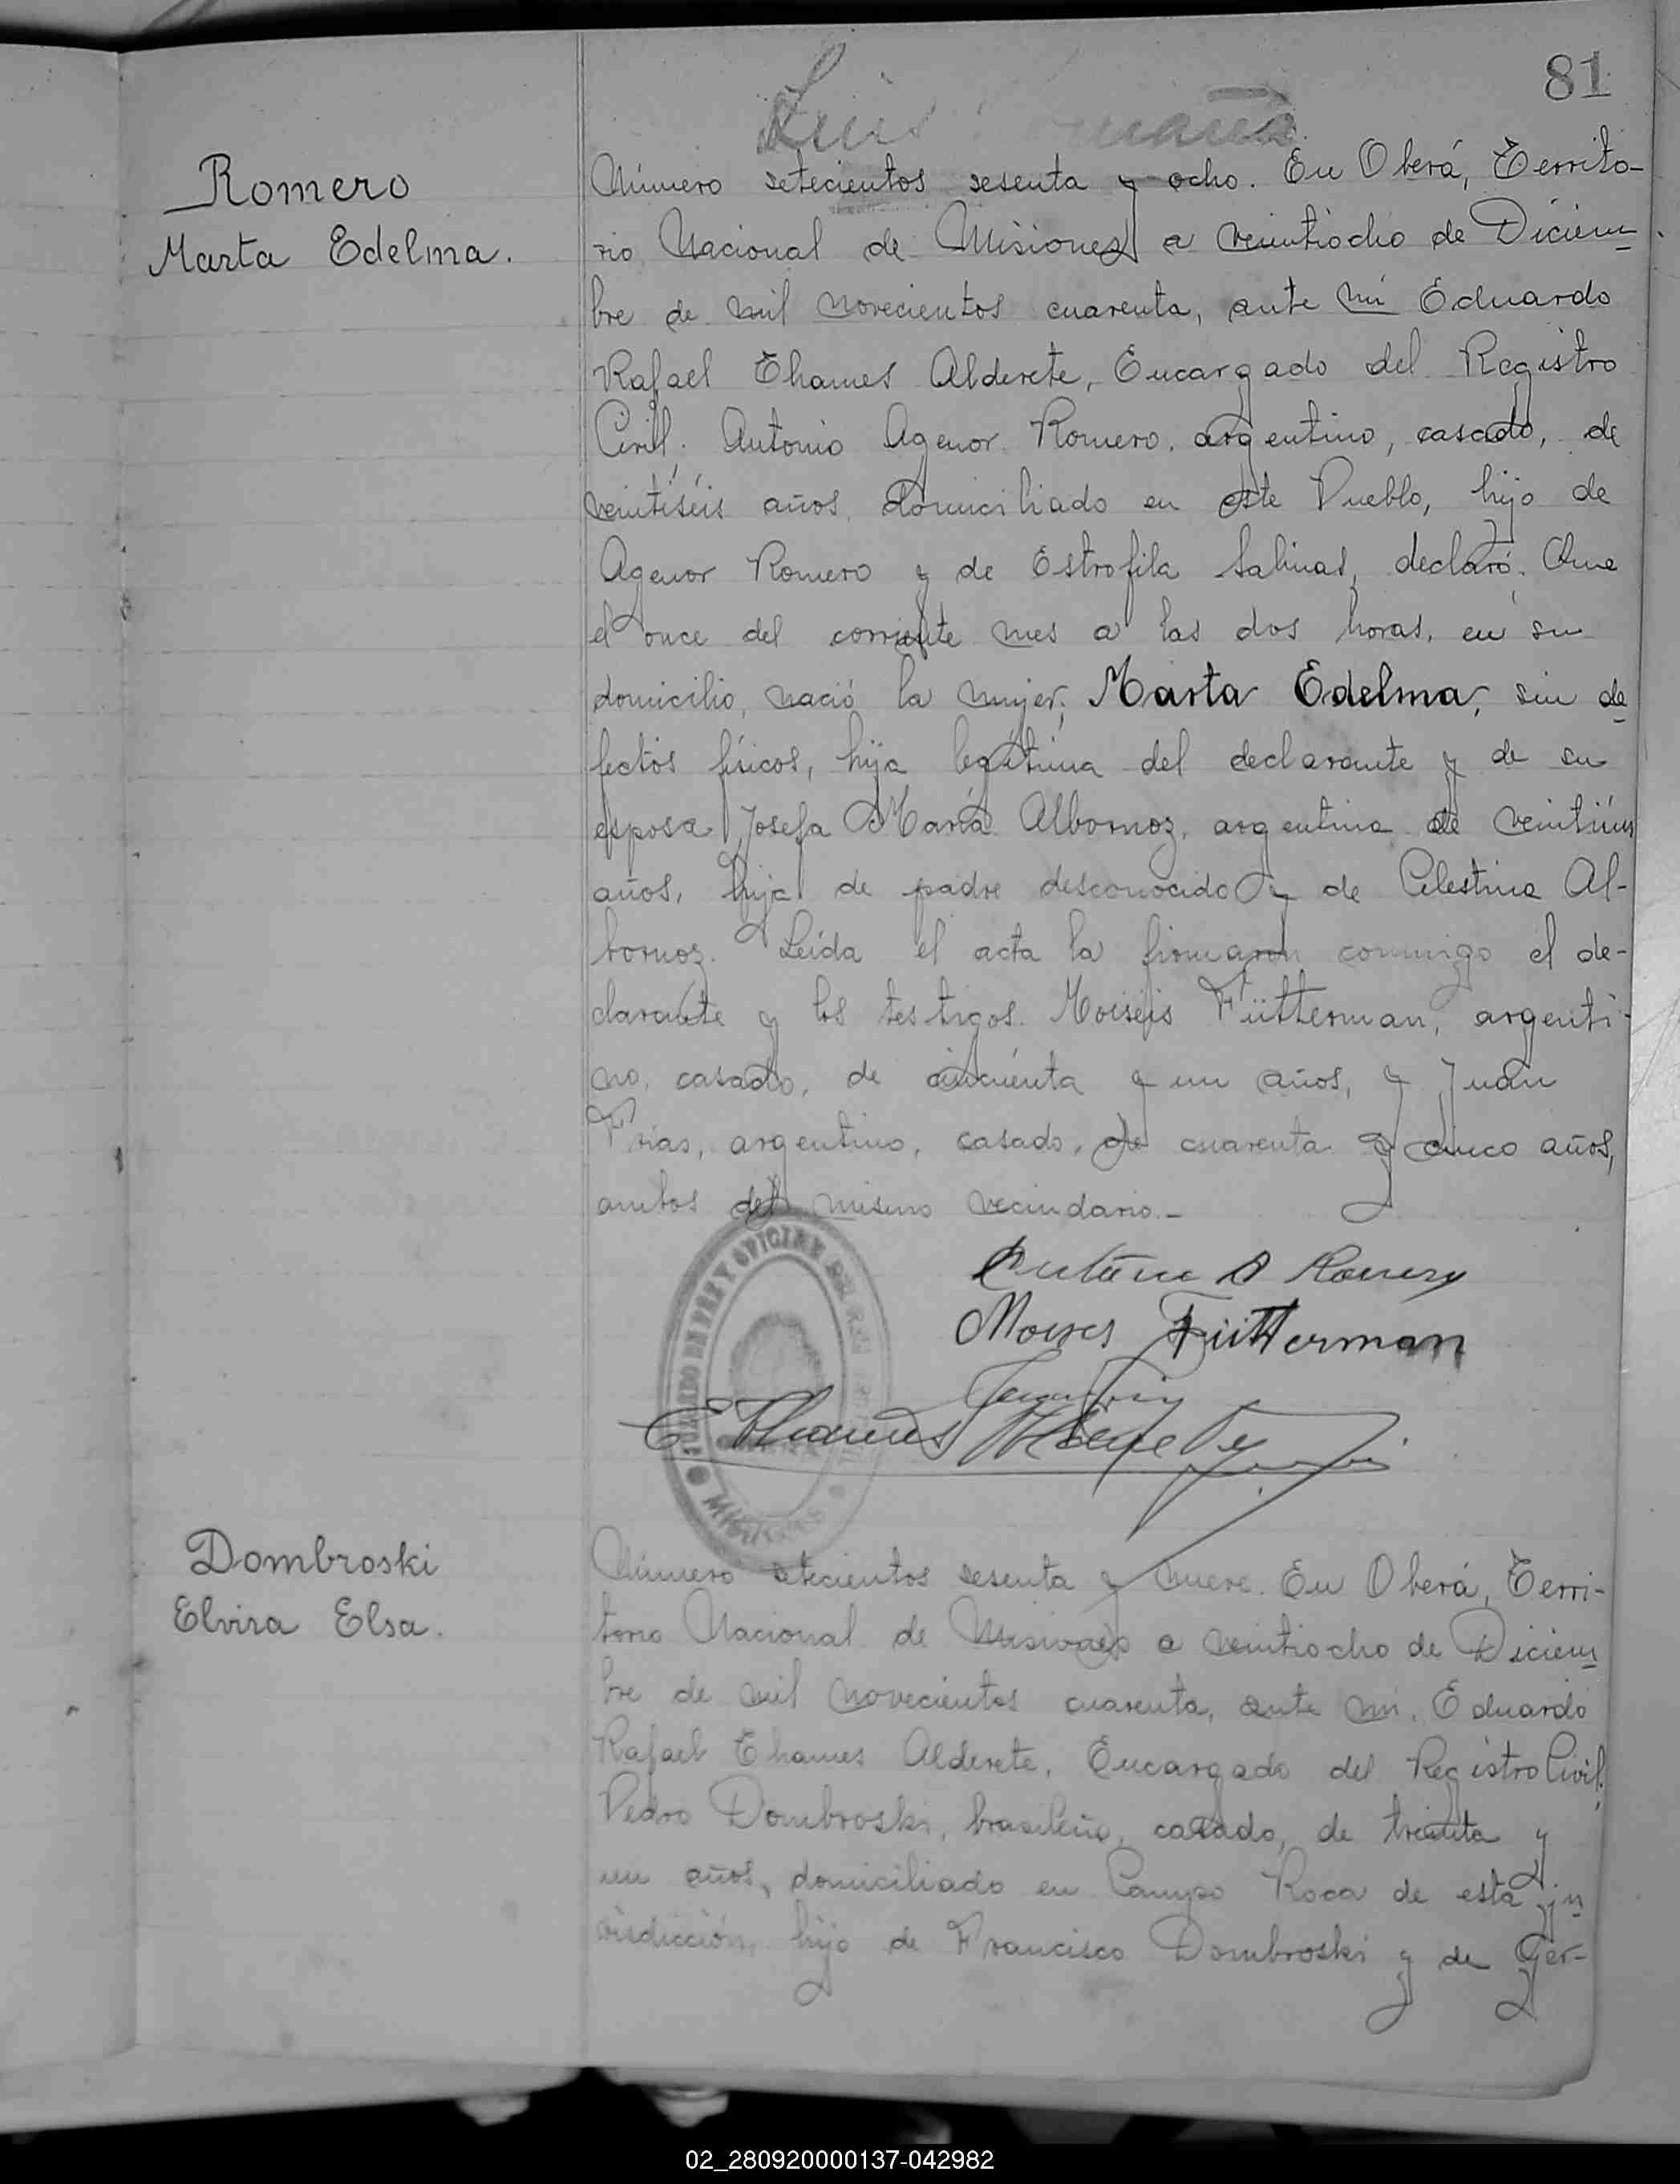 81
Luis
Romero
Marta Edelma.
Número setecientos sesenta y ocho. En Oberá, Territo-
rio Nacional de Misiones a veintiocho de Diciem
bre de mil novecientos cuarenta, ante mí Eduardo
Rafael Thames Alderete, Encargado del Registro
Civil. Antonio Agenor Romero, argentino, casado, de
veintiséis años, domiciliado en este Pueblo, hijo de
Agenor Romero y de Estrofila Salinas, declaró: Que
el once del corriente mes a las dos horas, en su
domicilio, nació la mujer; Marta Edelma, sin de
fectos físicos, hija legítima del declarante y de su
esposa Josefa María Albornoz, argentina de veintiún
años, hija de padre desconocido y de Celestina Al-
bornoz. Leída el acta la firmaron conmigo el de-
clarante y los testigos. Moiséis Fütterman, argenti-
no, casado, de cincuenta y un años, y Juan
Frias, argentino, casado, de cuarenta y cinco años,
ambos del mismo vecindario.-
Antonio A Romero
Moises Fütterman
E Thames Alderete
JUZGADO DE PAZ Y OFICINA DEL REG
MISIONES
Dombroski
Elvira Elsa.
Número setecientos sesenta y nueve. En Oberá, Terri-
torio Nacional de Misiones a veintiocho de Diciem
bre de mil novecientos cuarenta, ante mí, Eduardo
Rafael Thames Alderete, Encargado del Registro Civil.
Pedro Dombroski, brasileño, casado, de treinta y
un años, domiciliado en Campo Roca de esta ju
risdicción, hijo de Francisco Dombroski y de Ger-
02_280920000137-042982